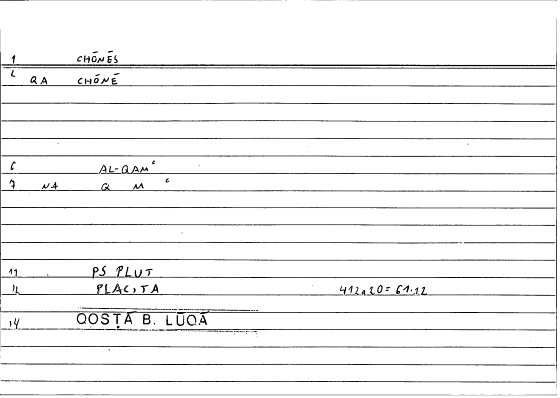 1 CHŌNĒS
2 QA CHŌNĒ
6 AL-QAMʿ
7 NA Q M ʿ
11 PS PLUT
12 PLACITA 412a20 = 61.12
14 QOSṬĀ B. LŪQĀ